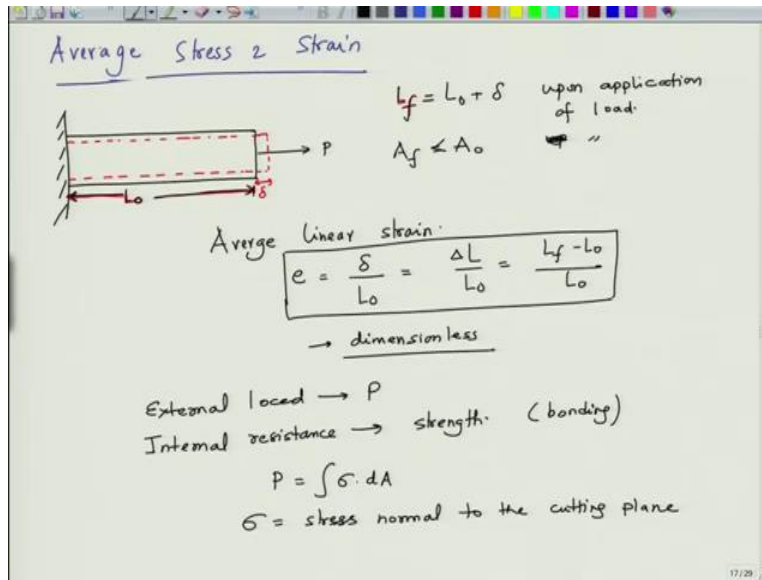 Average Stress & Strain
Lf = L0 + δ upon application of load.
Af < A0 "
P
L0
δ
Averge linear strain.
e = δ/L0 = ΔL/L0 = (Lf - L0)/L0
→ dimensionless
External loced → P
Internal resistance → strength. (bonding)
P = ∫σ.dA
σ = stress normal to the cutting plane
17/29